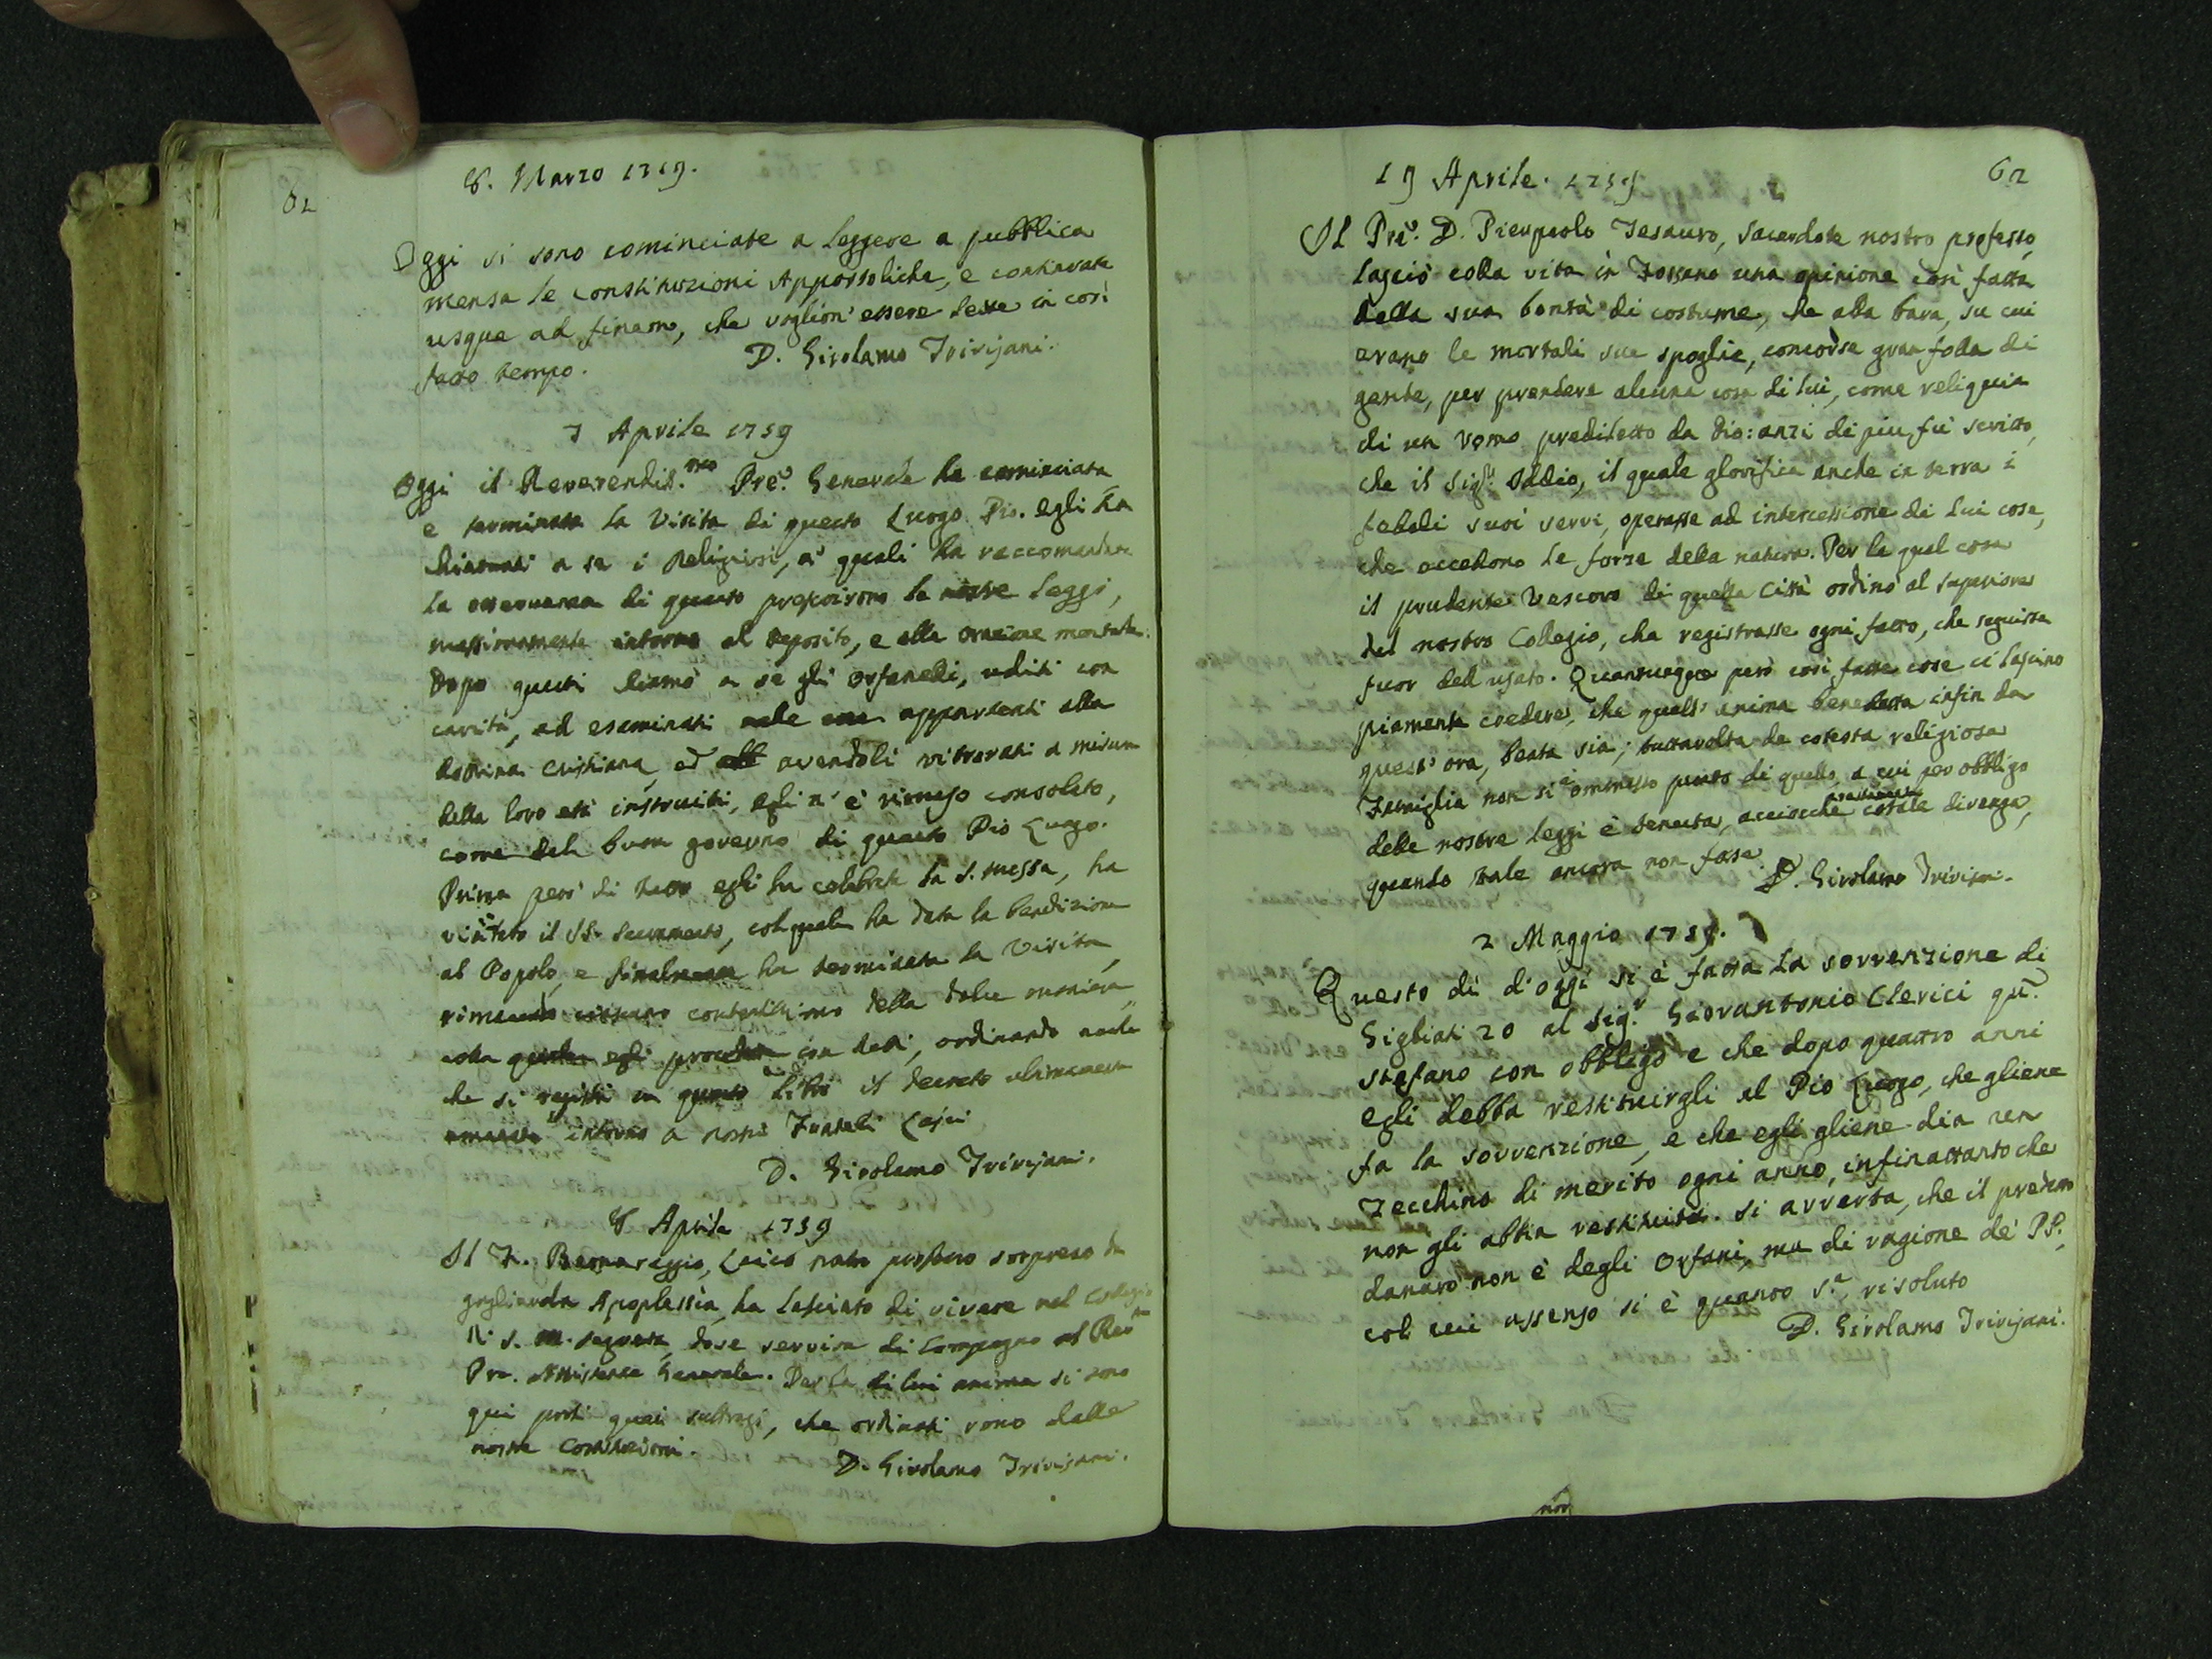 61
8. Marzo 1759.
Oggi si sono cominciate a leggere a pubblica
mensa le constituzioni Appostoliche, e continuate
usque ad finem, che voglion' essere lette in così
fatto tempo.
D. Girolamo Trivijani.
7 Aprile 1759
Oggi il Reverendis.mo Pre. Generale ha cominciata
e terminata la Visita di questo Luogo Pio. Egli ha
chiamati a se i Religiosi, a' quali ha raccomandata
la osservanza di quanto prescrivono le nostre leggi,
massimamente intorno al deposito, e alla orazione mentale.
Dopo questi chiamò a se gli orfanelli, uditi con
carità, ed esaminati nelle cose appartenenti alla
dottrina cristiana, ed avendoli ritrovati a misura
della loro età instruiti, egli n' è rimaso consolato,
come del buon governo di questo Pio Luogo.
Prima però di tutto egli ha celebrata la S. messa, ha
visitato il SS. Sacramento, col quale ha data la benedizione
al Popolo, e finalmente ha terminata la Visita,
rimanendo ciascuno contentissimo della dolce maniera,
colla quale egli procedette con lessi, ordinando anche
che si registri in questo Libro il decreto ultimamente
emanato intorno a nostri Fratelli Laici
D. Girolamo Trivijani.
8 Aprile 1759
Il F. Bernareggio, Laico nostro professo sorpreso da
gagliarda Apoplessia, ha lasciato di vivere nel Collegio
di S. M. Segreta dove serviva di Compagno al Rev.mo
Pre. Assistente Generale. Per la di lui anima si sono
qui fatti quei suffragi, che ordinati sono dalle
nostre Constituzioni.
D. Girolamo Trivijani.
62
19 Aprile. 1759
Il Pre. D. Pierpaolo Tesauro, sacerdote nostro professo,
lasciò colla vita in Fossano una opinione così fatta
della sua bontà di costume, che alla bara, su cui
erano le mortali sue spoglie, concorse gran folla di
gente, per prendere alcuna cosa di lui, come reliquia
di un Uomo prediletto da Dio: anzi di piu fu scritto,
che il Sig.r Iddio, il quale glorifica anche in terra i
fedeli suoi servi, operasse ad intercessione di lui cose,
che eccedono le forze della natura. Per la qual cosa
il prudente Vescovo di quella Città ordinò al Superiore
del nostro Collegio, che registrasse ogni fatto, che seguisse
fuor dell'usato. Quantunque però così fatte cose ci lascino
piamente credere, che quell' anima benedetta infin da
quest' ora, beata sia; tuttavolta da cotesta religiosa
Famiglia non si è ommesso punto di quello, a cui per obbligo
delle nostre leggi è tenuta, acciocche cotale divenga,
quando tale ancora non fosse
D. Girolamo Trivijani.
2 Maggio 1759.
Questo dì d'oggi si è fatta la sovvenzione di
Gigliati 20 al Sig.r Giovantonio Clerici qu.
Stefano con obbligo e che dopo quattro anni
egli debba restituirgli al Pio Luogo, che gliene
fa la sovvenzione, e che egli gliene dia un
Zecchino di merito ogni anno, infinattanto che
non gli abbia restituiti. Si avverta, che il predetto
danaro non è degli Orfani, ma di ragione de' PP.,
col cui assenso si è quanto s.a risoluto
D. Girolamo Trivijani.
non